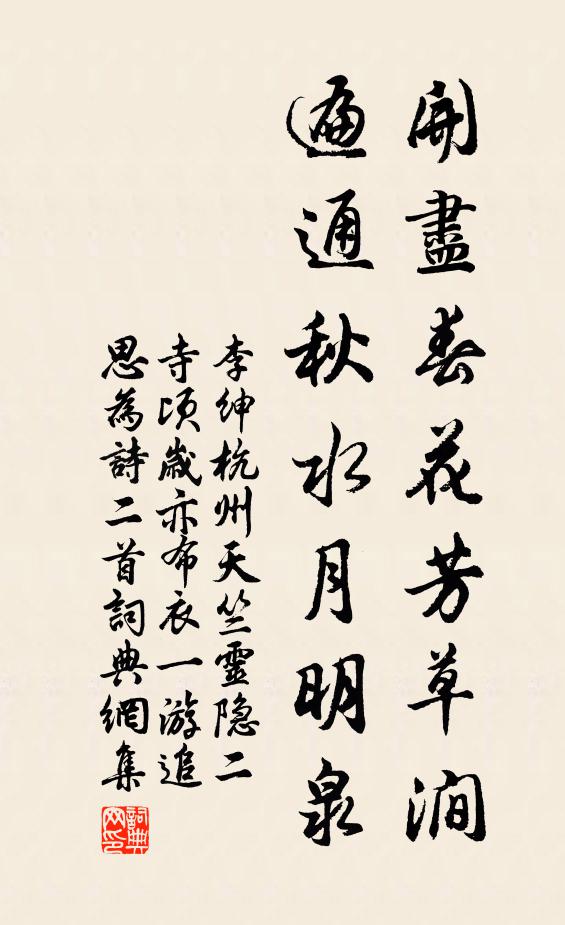 開盡春花芳草澗
遍通秋水月明泉
李紳杭州天竺靈隐二
寺頃歲亦布衣一游追
思為詩二首詞典網集
詞典網印